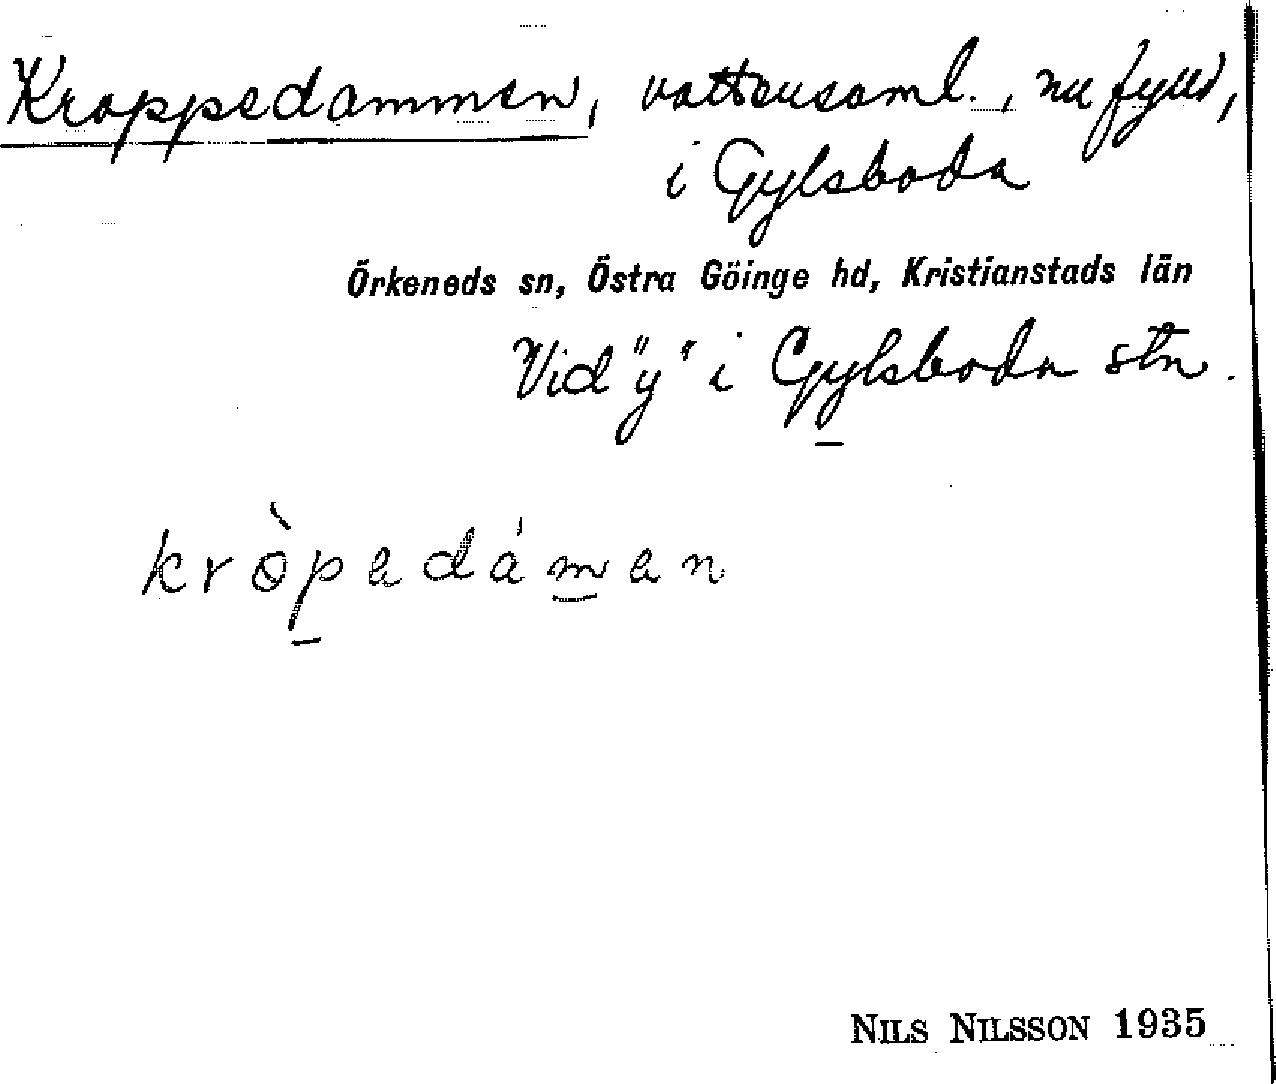 Kroppedammen, vattensaml., nu fylld,
i Gylsboda
Örkeneds sn, Östra Göinge hd, Kristianstads län
Vid "y" i Gylsboda stn.
kròpedámen
NILS NILSSON 1935